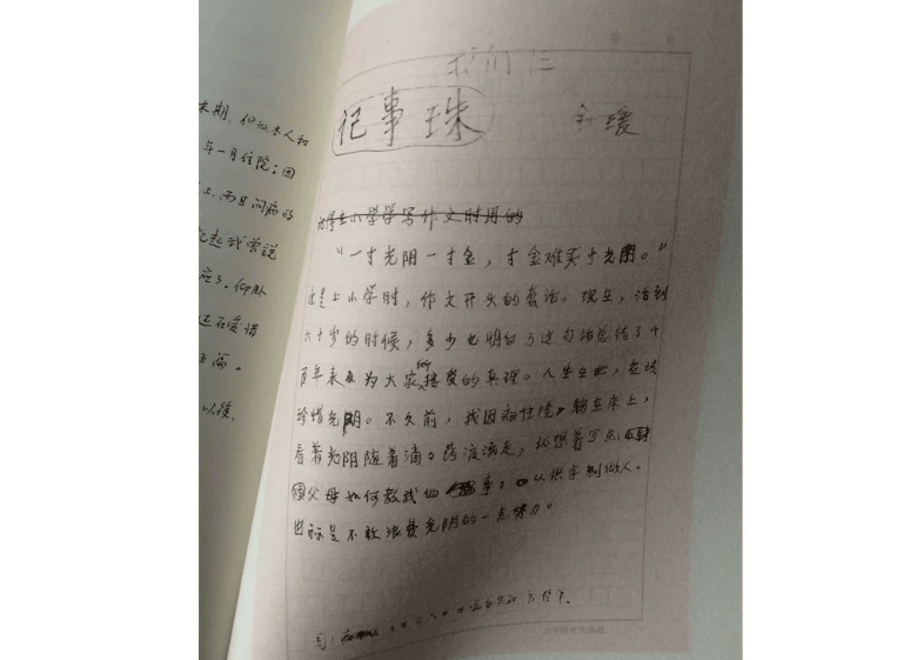 末期，但做本人和
年一月住院；因
上，而且问病的
起我曾说
应了。仰卧
还在爱惜
以後。
我们仨
记事珠
钱瑗
记得在小学学写作文时用的
“一寸光阴一寸金，寸金难买寸光阴。”
这是上小学时，作文开头的套话。现在，活到
六十岁的时候，多少也明白了这句话总结了千
百年来为大家所接受的真理。人生在世，应该
珍惜光阴。不久前，我因病住院，躺在床上，
看着光阴随着滴滴药液流走，就想着写点
父母如何教我的事，从识字到做人。
也算是不敢浪费光阴的一点努力。